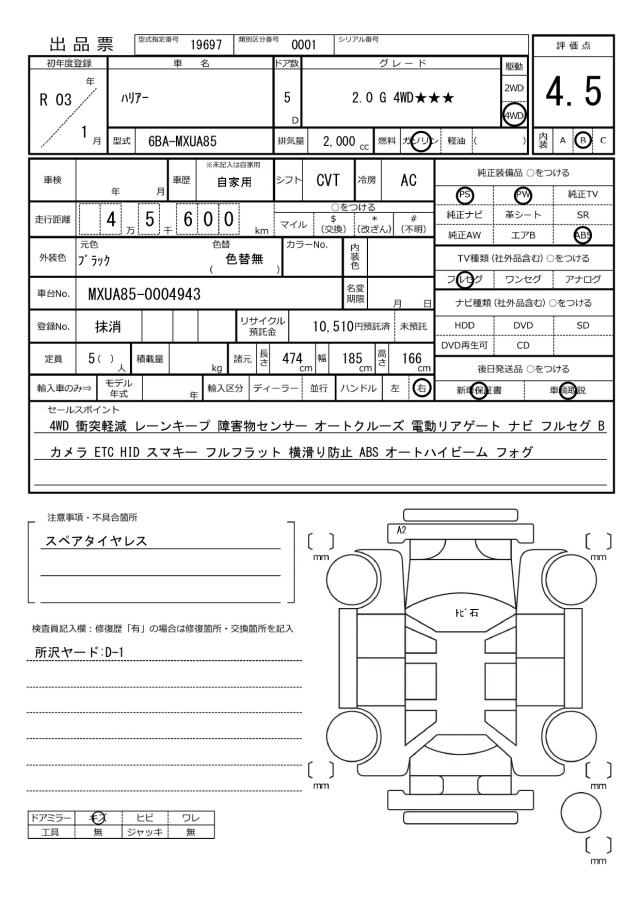 出品票 型式指定番号 19697 類別区分番号 0001 シリアル番号
評価点
4.5
内装 A B C
初年度登録 車名 ドア数 グレード 駆動
R 03 年 1 月
ハリアー 5 D 2.0 G 4WD★★★ 2WD 4WD
型式 6BA-MXUA85 排気量 2,000 cc 燃料 ガソリン 軽油 ( )
車検 年 月 車歴 ※未記入は自家用 自家用 シフト CVT 冷房 AC
走行距離 4 万 5 千 6 0 0 km
○をつける
マイル $ (交換) * (改ざん) # (不明)
外装色 元色 ブラック 色替 ( 色替無 ) カラーNo. 内装色
車台No. MXUA85-0004943 名変期限 月 日
登録No. 抹消 リサイクル預託金 10,510円預託済 未預託
定員 5( ) 人 積載量 kg 諸元 長さ 474 cm 幅 185 cm 高さ 166 cm
輸入車のみ⇒ モデル年式 年 輸入区分 ディーラー 並行 ハンドル 左 右
純正装備品 ○をつける
PS PW 純正TV
純正ナビ 革シート SR
純正AW エアB ABS
TV種類 (社外品含む) ○をつける
フルセグ ワンセグ アナログ
ナビ種類 (社外品含む) ○をつける
HDD DVD SD
DVD再生可 CD
後日発送品 ○をつける
新車保証書 車輌取説
セールスポイント
4WD 衝突軽減 レーンキープ 障害物センサー オートクルーズ 電動リアゲート ナビ フルセグ B
カメラ ETC HID スマキー フルフラット 横滑り防止 ABS オートハイビーム フォグ
注意事項・不具合箇所
スペアタイヤレス
検査員記入欄：修復歴「有」の場合は修復箇所・交換箇所を記入
所沢ヤード:D-1
ドアミラー キズ ヒビ ワレ
工具 無 ジャッキ 無
A2
トビ石
[ ] mm
[ ] mm
[ ] mm
[ ] mm
[ ] mm